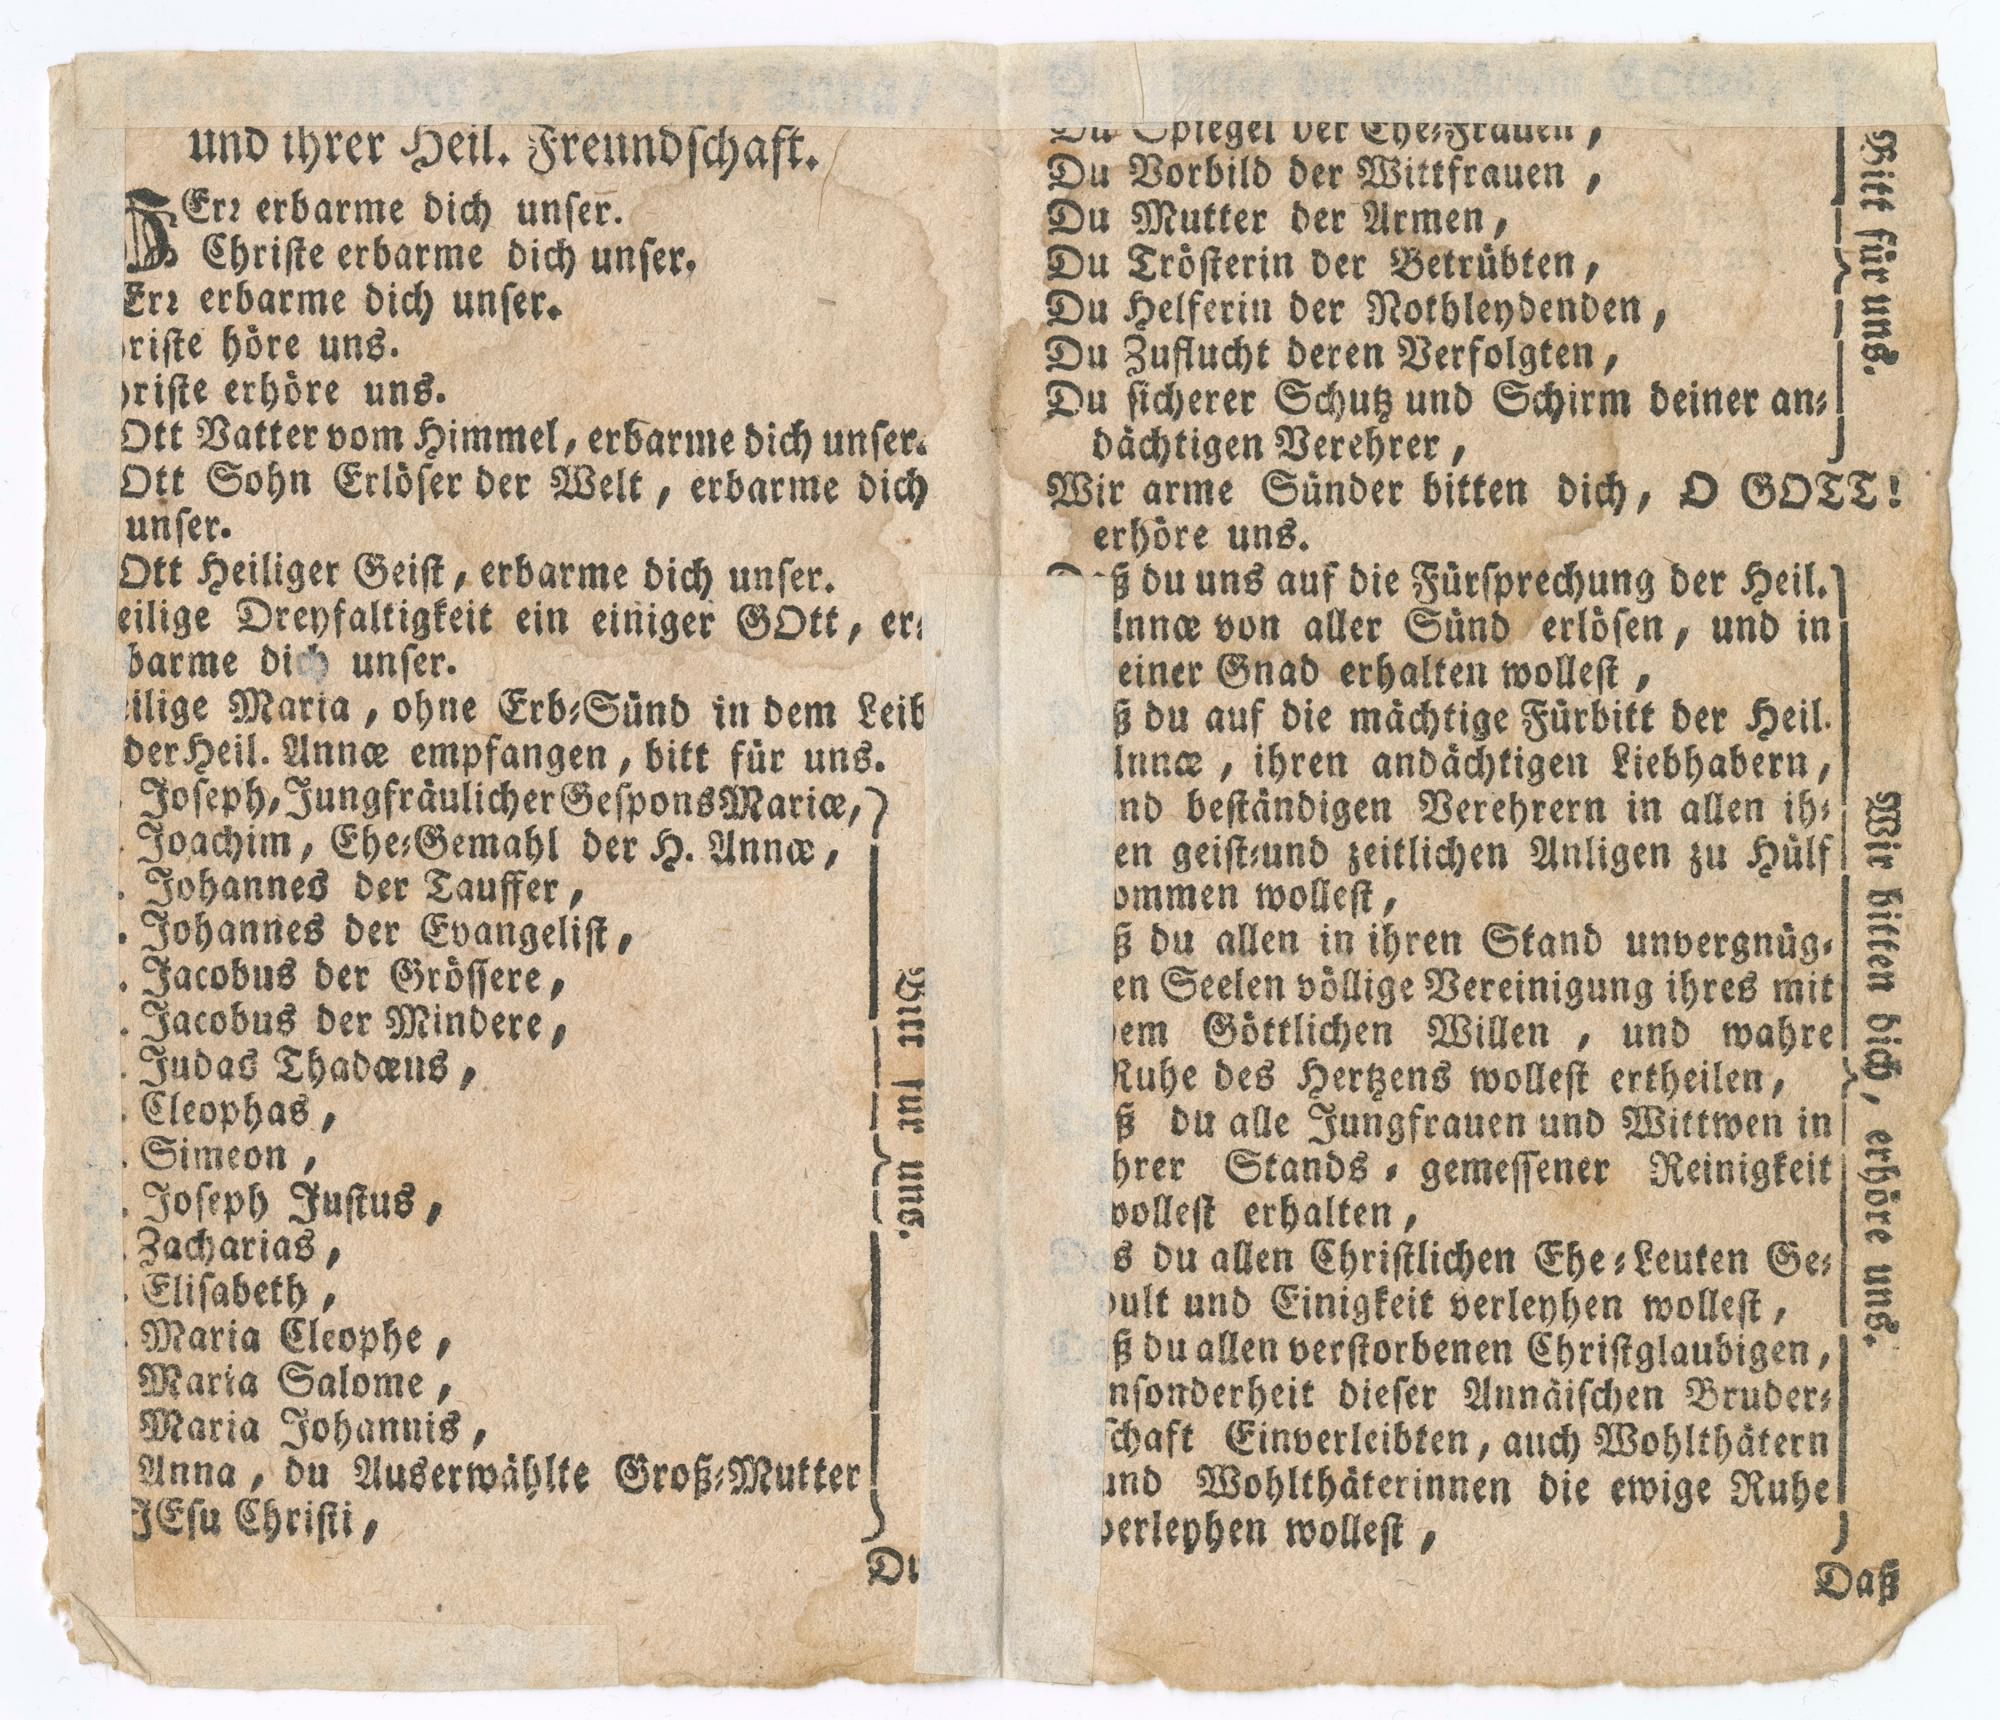 und ihrer Heil. Freundschaft.
HErr erbarme dich unser.
Christe erbarme dich unser.
Err erbarme dich unser.
riste höre uns.
riste erhöre uns.
Ott Vatter vom Himmel, erbarme dich unser.
Ott Sohn Erlöser der Welt, erbarme dich
unser.
Ott Heiliger Geist, erbarme dich unser.
eilige Dreyfaltigkeit ein einiger GOtt, er-
barme dich unser.
ilige Maria, ohne Erb-Sünd in dem Leib
der Heil. Annæ empfangen, bitt für uns.
. Joseph, Jungfräulicher Gespons Mariæ,
. Joachim, Ehe-Gemahl der H. Annæ,
. Johannes der Tauffer,
. Johannes der Evangelist,
. Jacobus der Grössere,
. Jacobus der Mindere,
. Judas Thadæus,
. Cleophas,
. Simeon,
. Joseph Justus,
. Zacharias,
. Elisabeth,
. Maria Cleophe,
Maria Salome,
Maria Johannis,
Anna, du Auserwählte Groß-Mutter
JEsu Christi,
Bitt für uns.
Du
Du Spiegel der Ehe-Frauen,
Du Vorbild der Wittfrauen,
Du Mutter der Armen,
Du Trösterin der Betrübten,
Du Helferin der Nothleydenden,
Du Zuflucht deren Verfolgten,
Du sicherer Schutz und Schirm deiner an-
dächtigen Verehrer,
Bitt für uns.
Wir arme Sünder bitten dich, O GOTT!
erhöre uns.
Daß du uns auf die Fürsprechung der Heil.
Annæ von aller Sünd erlösen, und in
einer Gnad erhalten wollest,
ß du auf die mächtige Fürbitt der Heil.
Annæ, ihren andächtigen Liebhabern,
nd beständigen Verehrern in allen ih-
en geist-und zeitlichen Anligen zu Hülf
ommen wollest,
ß du allen in ihren Stand unvergnüg-
en Seelen völlige Vereinigung ihres mit
em Göttlichen Willen, und wahre
Ruhe des Hertzens wollest ertheilen,
ß du alle Jungfrauen und Wittwen in
hrer Stands-gemessener Reinigkeit
wollest erhalten,
s du allen Christlichen Ehe-Leuten Ge-
dult und Einigkeit verleyhen wollest,
ß du allen verstorbenen Christglaubigen,
nsonderheit dieser Annäischen Bruder-
schaft Einverleibten, auch Wohlthätern
und Wohlthäterinnen die ewige Ruhe
verleyhen wollest,
Wir bitten dich, erhöre uns.
Daß